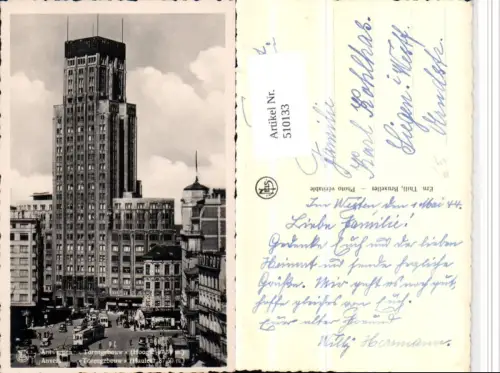 Antwerpen - Torengebouw (Hoogte
Anvers - «Torengebouw» (Hauteur
Artikel Nr.
510133
Familie
Karl Kohlhas.
Siegen i. Westf.
Ern. Thill, Bruxelles - Photo véritable
Im Westen den 1 Mai 44.
Liebe Familie!
Gedenke Euch und die lieben
Heimat und sende herzliche
Grüße. Mir geht es noch gut,
hoffe gleiches von Euch.
Euer alter Freund
Willy Herrmann.